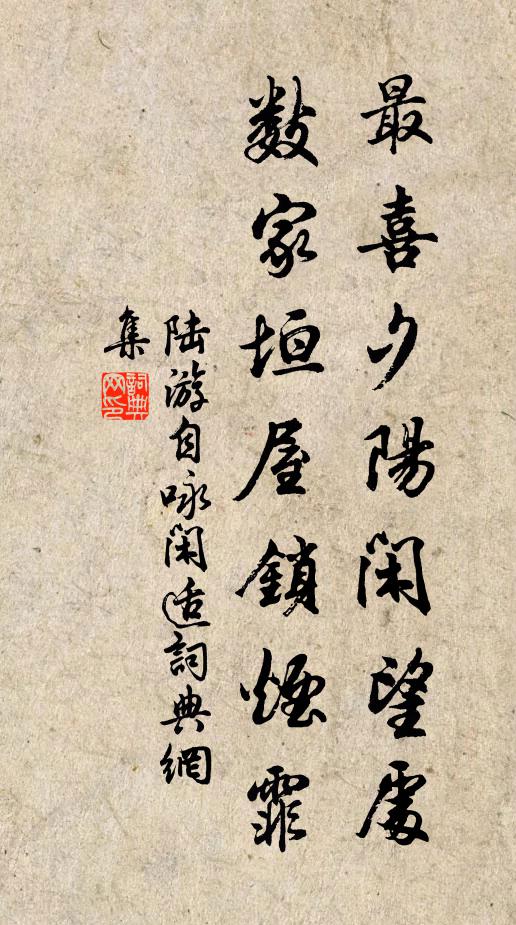 最喜夕陽閑望處
數家垣屋鎖煙霏
陸游自咏閑適詞典網
集
詞典
网印